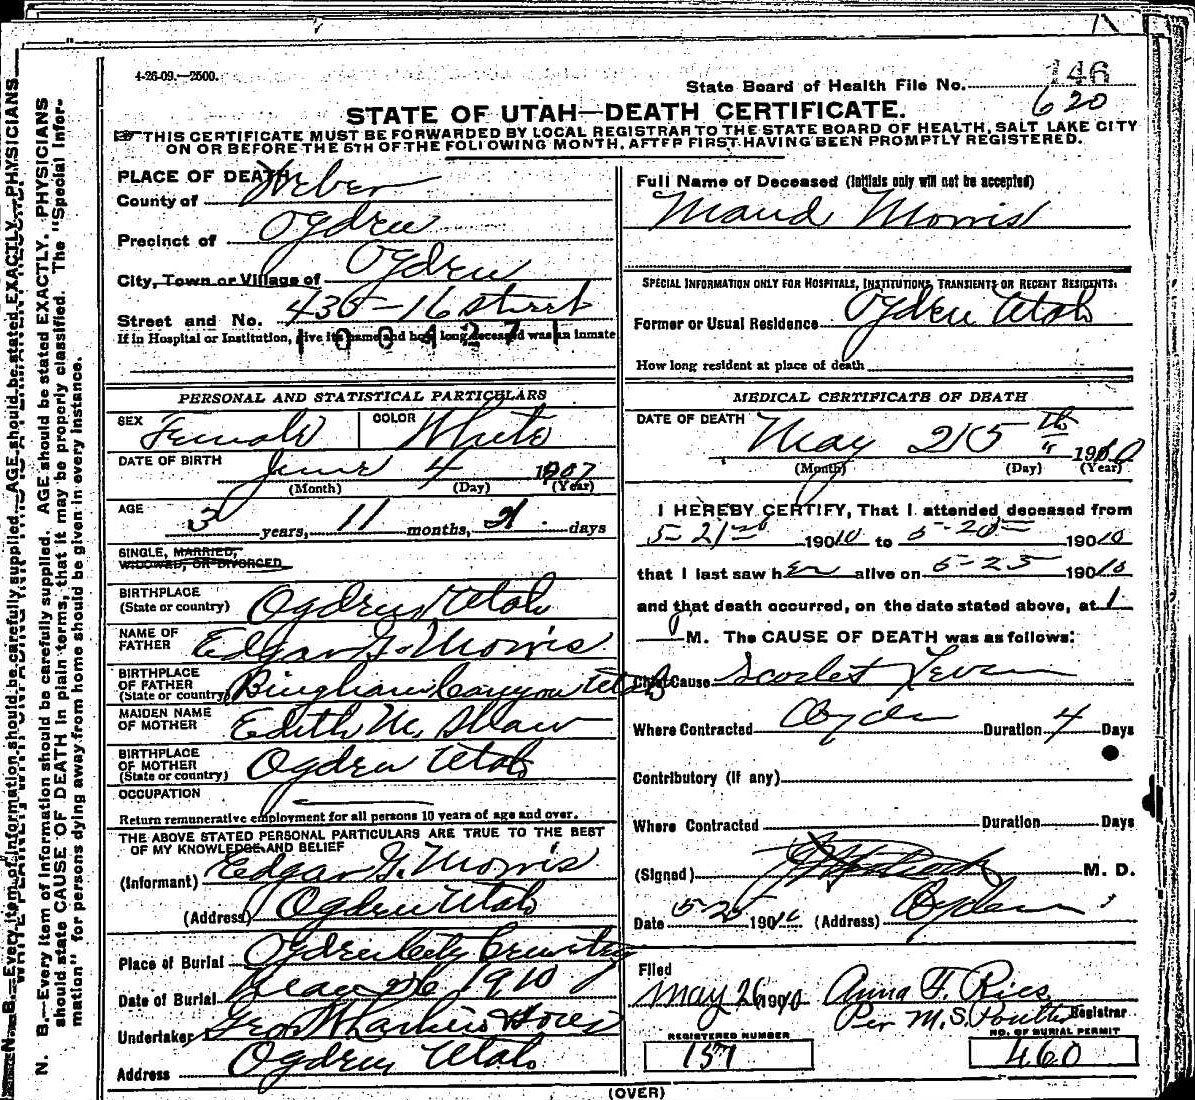 4-26-09.—2500.
State Board of Health File No. 146
620
STATE OF UTAH—DEATH CERTIFICATE.
THIS CERTIFICATE MUST BE FORWARDED BY LOCAL REGISTRAR TO THE STATE BOARD OF HEALTH, SALT LAKE CITY
ON OR BEFORE THE 5TH OF THE FOLLOWING MONTH, AFTER FIRST HAVING BEEN PROMPTLY REGISTERED.
PLACE OF DEATH
County of Weber
Precinct of Ogden
City, Town or Village of Ogden
Street and No. 435-16 Street
If in Hospital or Institution, give its name and how long deceased was an inmate
1004271
Full Name of Deceased (Initials only will not be accepted)
Maud Morris
SPECIAL INFORMATION ONLY FOR HOSPITALS, INSTITUTIONS, TRANSIENTS OR RECENT RESIDENTS.
Former or Usual Residence Ogden Utah
How long resident at place of death
PERSONAL AND STATISTICAL PARTICULARS
SEX Female COLOR White
DATE OF BIRTH June 4 1907
(Month) (Day) (Year)
AGE 3 years, 11 months, 21 days
SINGLE, MARRIED,
WIDOWED, OR DIVORCED
BIRTHPLACE
(State or country) Ogden Utah
NAME OF
FATHER Edgar G. Morris
BIRTHPLACE
OF FATHER
(State or country) Bingham Canyon Utah
MAIDEN NAME
OF MOTHER Edith M. Shaw
BIRTHPLACE
OF MOTHER
(State or country) Ogden Utah
OCCUPATION
Return remunerative employment for all persons 10 years of age and over.
THE ABOVE STATED PERSONAL PARTICULARS ARE TRUE TO THE BEST
OF MY KNOWLEDGE AND BELIEF
(Informant) Edgar G. Morris
(Address) Ogden Utah
Place of Burial Ogden City Cemetery
Date of Burial May 26 1910
Undertaker Geo W Larkin & Sons
Address Ogden Utah
MEDICAL CERTIFICATE OF DEATH
DATE OF DEATH May 25th 1910
(Month) (Day) (Year)
I HEREBY CERTIFY, That I attended deceased from
5-21st 1910 to 5-25 1910
that I last saw her alive on 5-25 1910
and that death occurred, on the date stated above, at 1
M. The CAUSE OF DEATH was as follows:
Chief Cause Scarlet Fever
Where Contracted Ogden Duration 4 Days
Contributory (if any)
Where Contracted Duration Days
(Signed) M. D.
Date 5-25 1910 (Address) Ogden
Filed
May 26 1910 Anna F. Ries
Per M.S. Registrar
REGISTERED NUMBER
157
NO. OF BURIAL PERMIT
460
(OVER)
N. B.—Every item of information should be carefully supplied. AGE should be stated EXACTLY. PHYSICIANS
should state CAUSE OF DEATH in plain terms, that it may be properly classified. The "Special Infor-
mation" for persons dying away from home should be given in every instance.